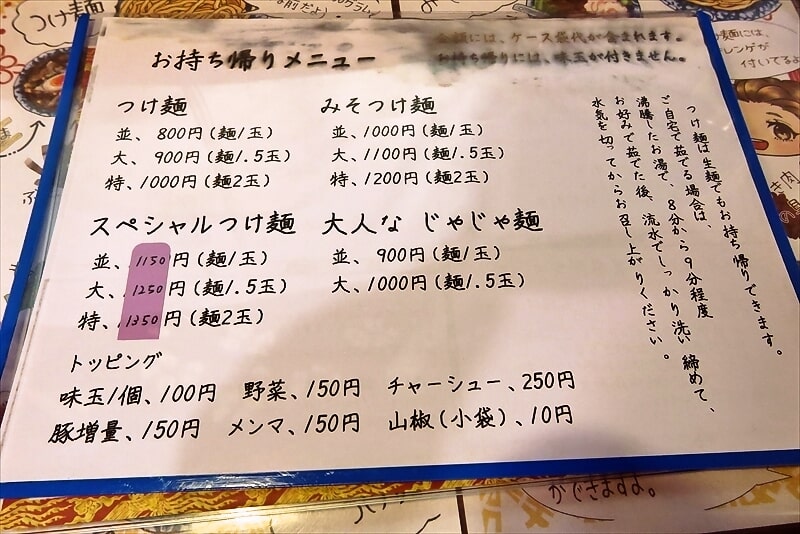 お持ち帰りメニュー
金額には、ケース袋代が含まれます。
お持ち帰りには、味玉が付きません。
つけ麺
並、800円(麺1玉)
大、900円(麺1.5玉)
特、1000円(麺2玉)
みそつけ麺
並、1000円(麺1玉)
大、1100円(麺1.5玉)
特、1200円(麺2玉)
スペシャルつけ麺
並、1150円(麺1玉)
大、1250円(麺1.5玉)
特、1350円(麺2玉)
大人な じゃじゃ麺
並、900円(麺1玉)
大、1000円(麺1.5玉)
トッピング
味玉1個、100円 野菜、150円 チャーシュー、250円
豚増量、150円 メンマ、150円 山椒(小袋)、10円
つけ麺は生麺でもお持ち帰りできます。
ご自宅で茹でる場合は、
沸騰したお湯で、8分から9分程度
お好みで茹でた後、流水でしっかり洗い締めて、
水気を切ってからお召し上がりください。
つけ麺
麺には、
レンゲが
付いてるよ
肉
ができますよ。